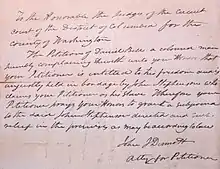 To the Honorable the Judges of the Circuit
court of the District of Columbia for the
county of Washington
The Petition of Daniel Bell a colored man
humbly complaining sheweth unto your Honors that
your Petitioner is entitled to his freedom and is
unjustly held in bondage by John Stephenson who
claims your Petitioner as his slave. Wherefore your
Petitioner prays your Honors to grant a subpoena
to the said John Stephenson directed and such
relief in the premises as may be according to law
John J Dermott
Atty for Petitioner